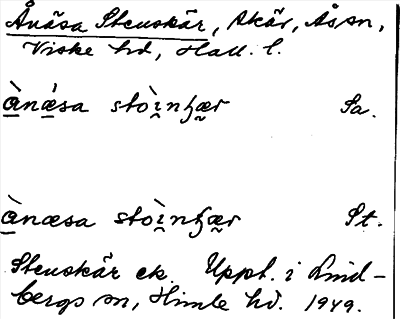 Ånäsa Stenskär, skär, Ås sn,
Viske hd, Hall. l.
ànǽsa stòi̯nʒær Sa.
ànæsa stòi̯nʒær St.
Stenskär ek. Uppt. i Lind-
bergs sn, Himle hd. 1949.